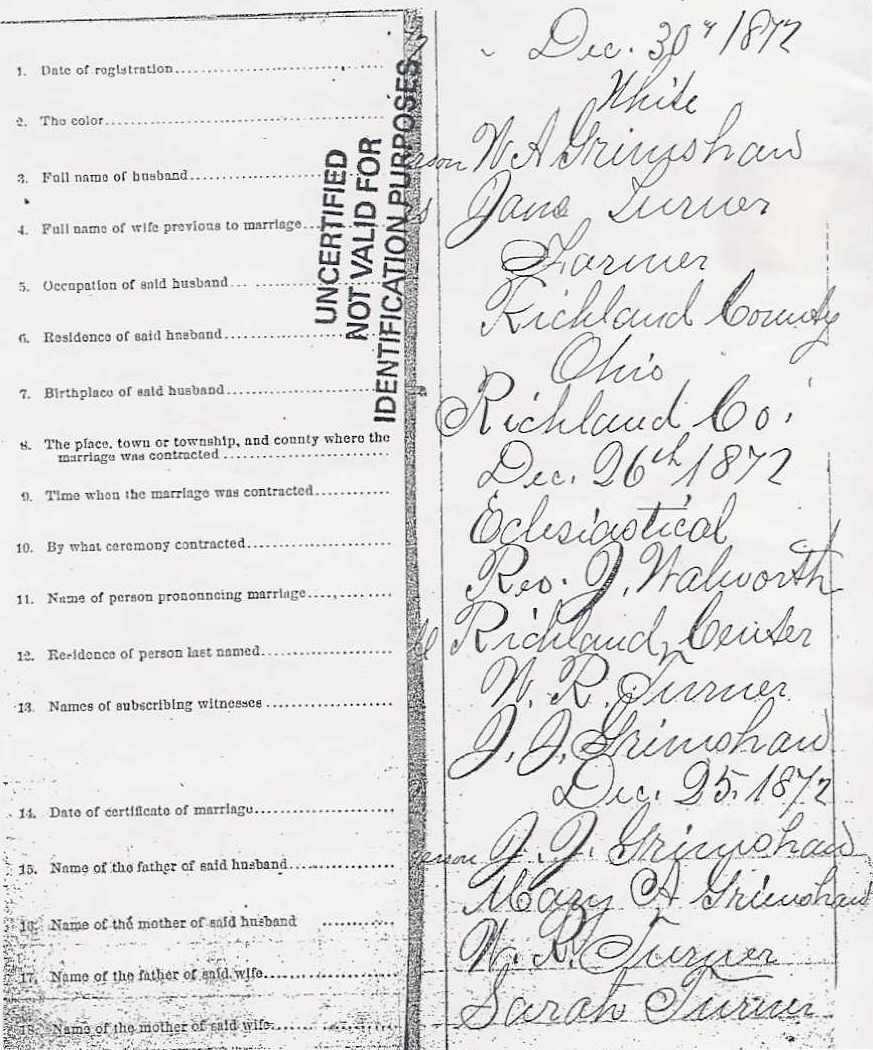 1. Date of registration Dec. 30th 1872
2. The color White
3. Full name of husband W A Grimshaw
4. Full name of wife previous to marriage Jane Turner
5. Occupation of said husband Farmer
6. Residence of said husband Richland County
7. Birthplace of said husband Ohio
8. The place, town or township, and county where the
marriage was contracted Richland Co.
9. Time when the marriage was contracted Dec. 26th 1872
10. By what ceremony contracted Eclesiastical
11. Name of person pronouncing marriage Rev. J. Walworth
12. Residence of person last named Richland Center
13. Names of subscribing witnesses W. R. Turner
J. J. Grimshaw
14. Date of certificate of marriage Dec. 25. 1872
15. Name of the father of said husband J. J. Grimshaw
16. Name of the mother of said husband Mary A Grimshaw
17. Name of the father of said wife W. R. Turner
18. Name of the mother of said wife Sarah Turner
UNCERTIFIED
NOT VALID FOR
IDENTIFICATION PURPOSES